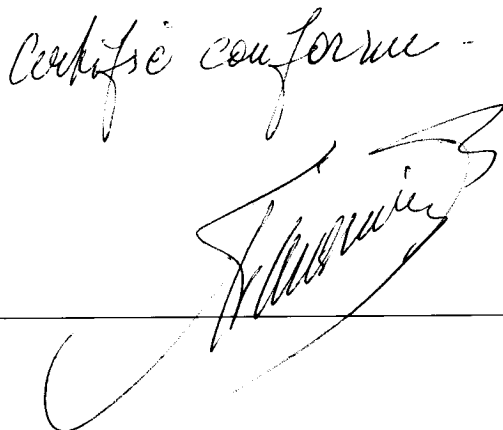 Certifié conforme -